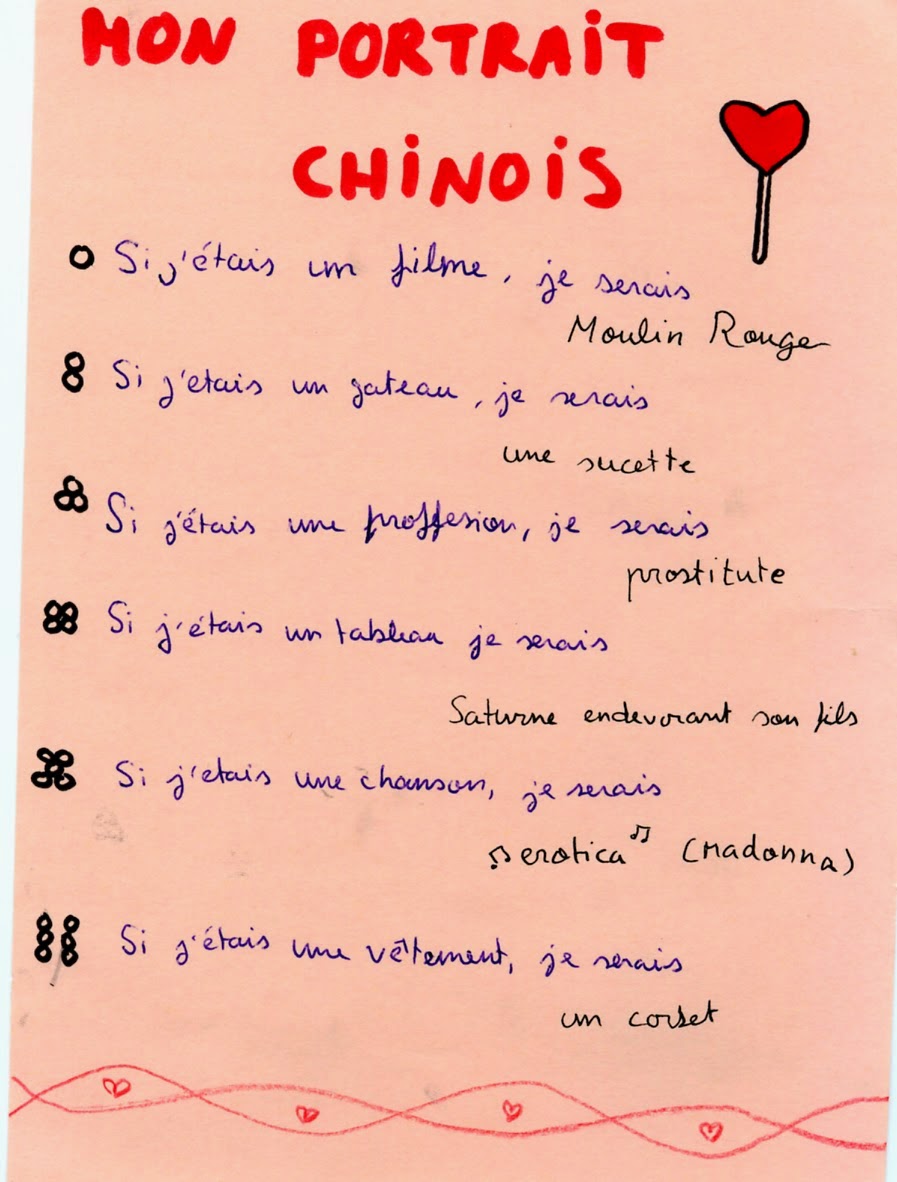 MON PORTRAiT
CHiNOiS
Si j'étais un filme, je serais
Moulin Rouge
Si j'etais un gateau, je serais
une sucette
Si j'étais une proffesion, je serais
prostitute
Si j'étais un tableau je serais
Saturne endevorant son fils
Si j'etais une chanson, je serais
♫ erotica ♫ (Madonna)
Si j'étais une vêtement, je serais
un corset